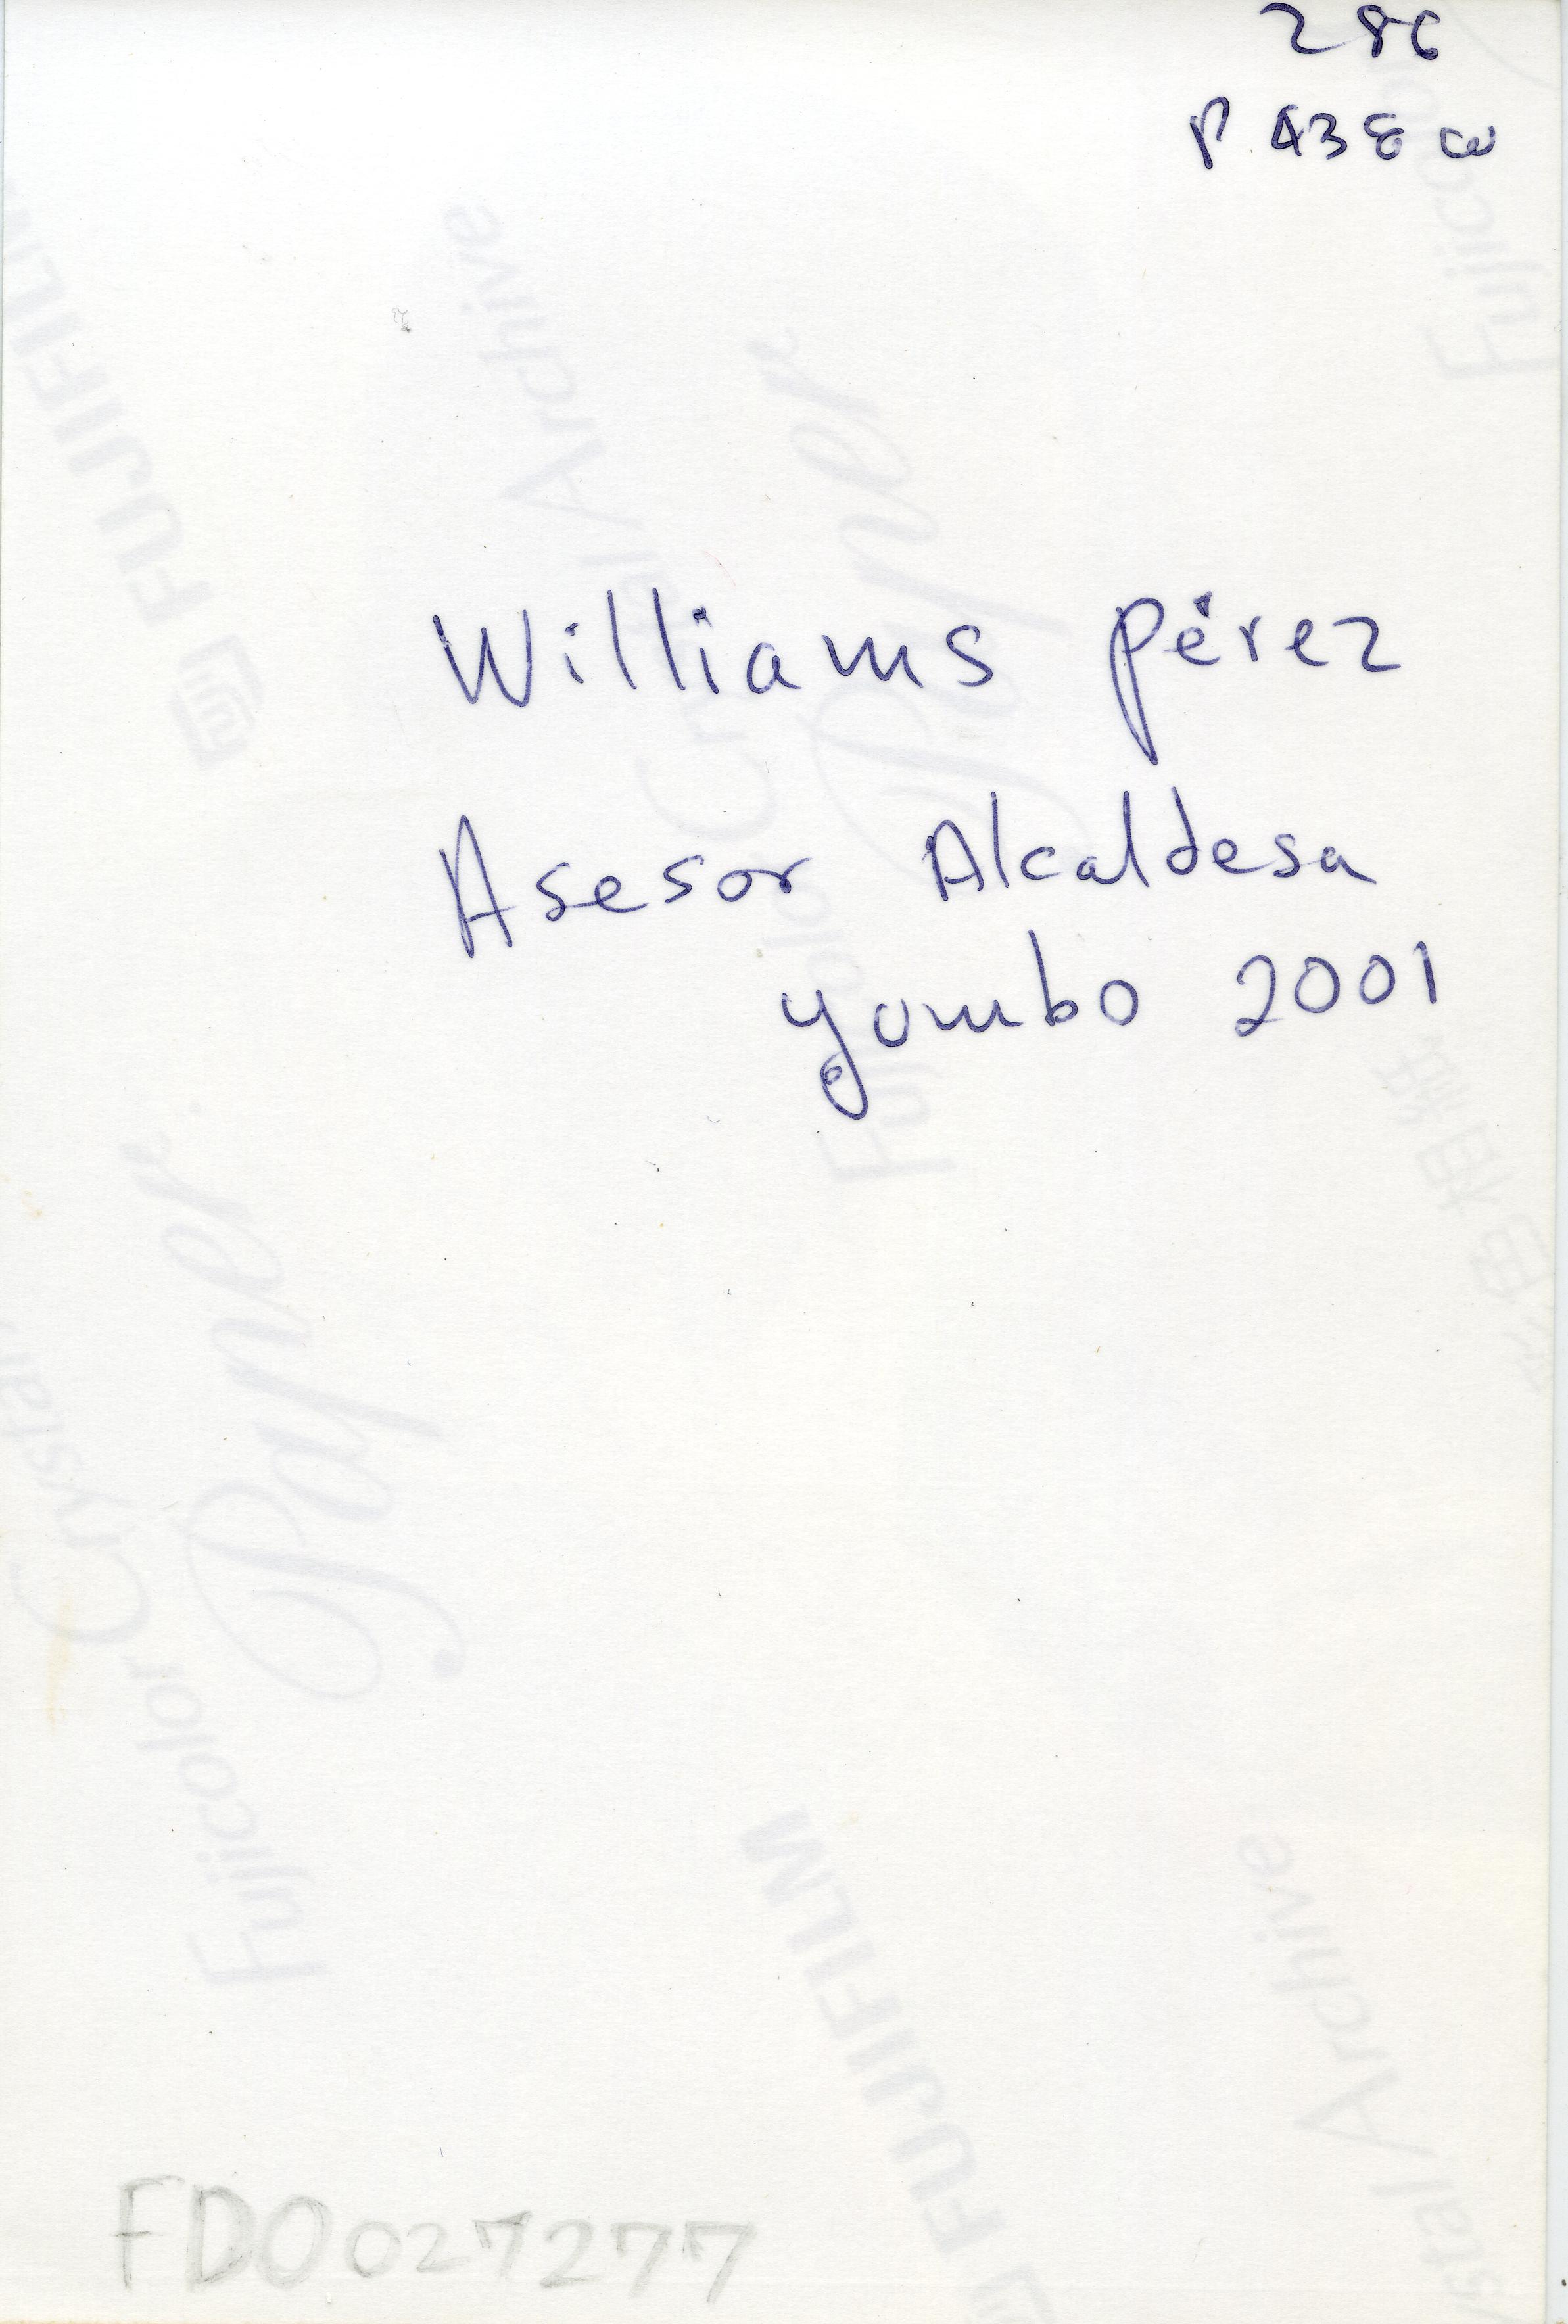 286
P 438 w
Williams Pérez
Asesor Alcaldesa
yumbo 2001
FUJIFILM
Fujicolor Crystal Archive
Paper
FDO027277